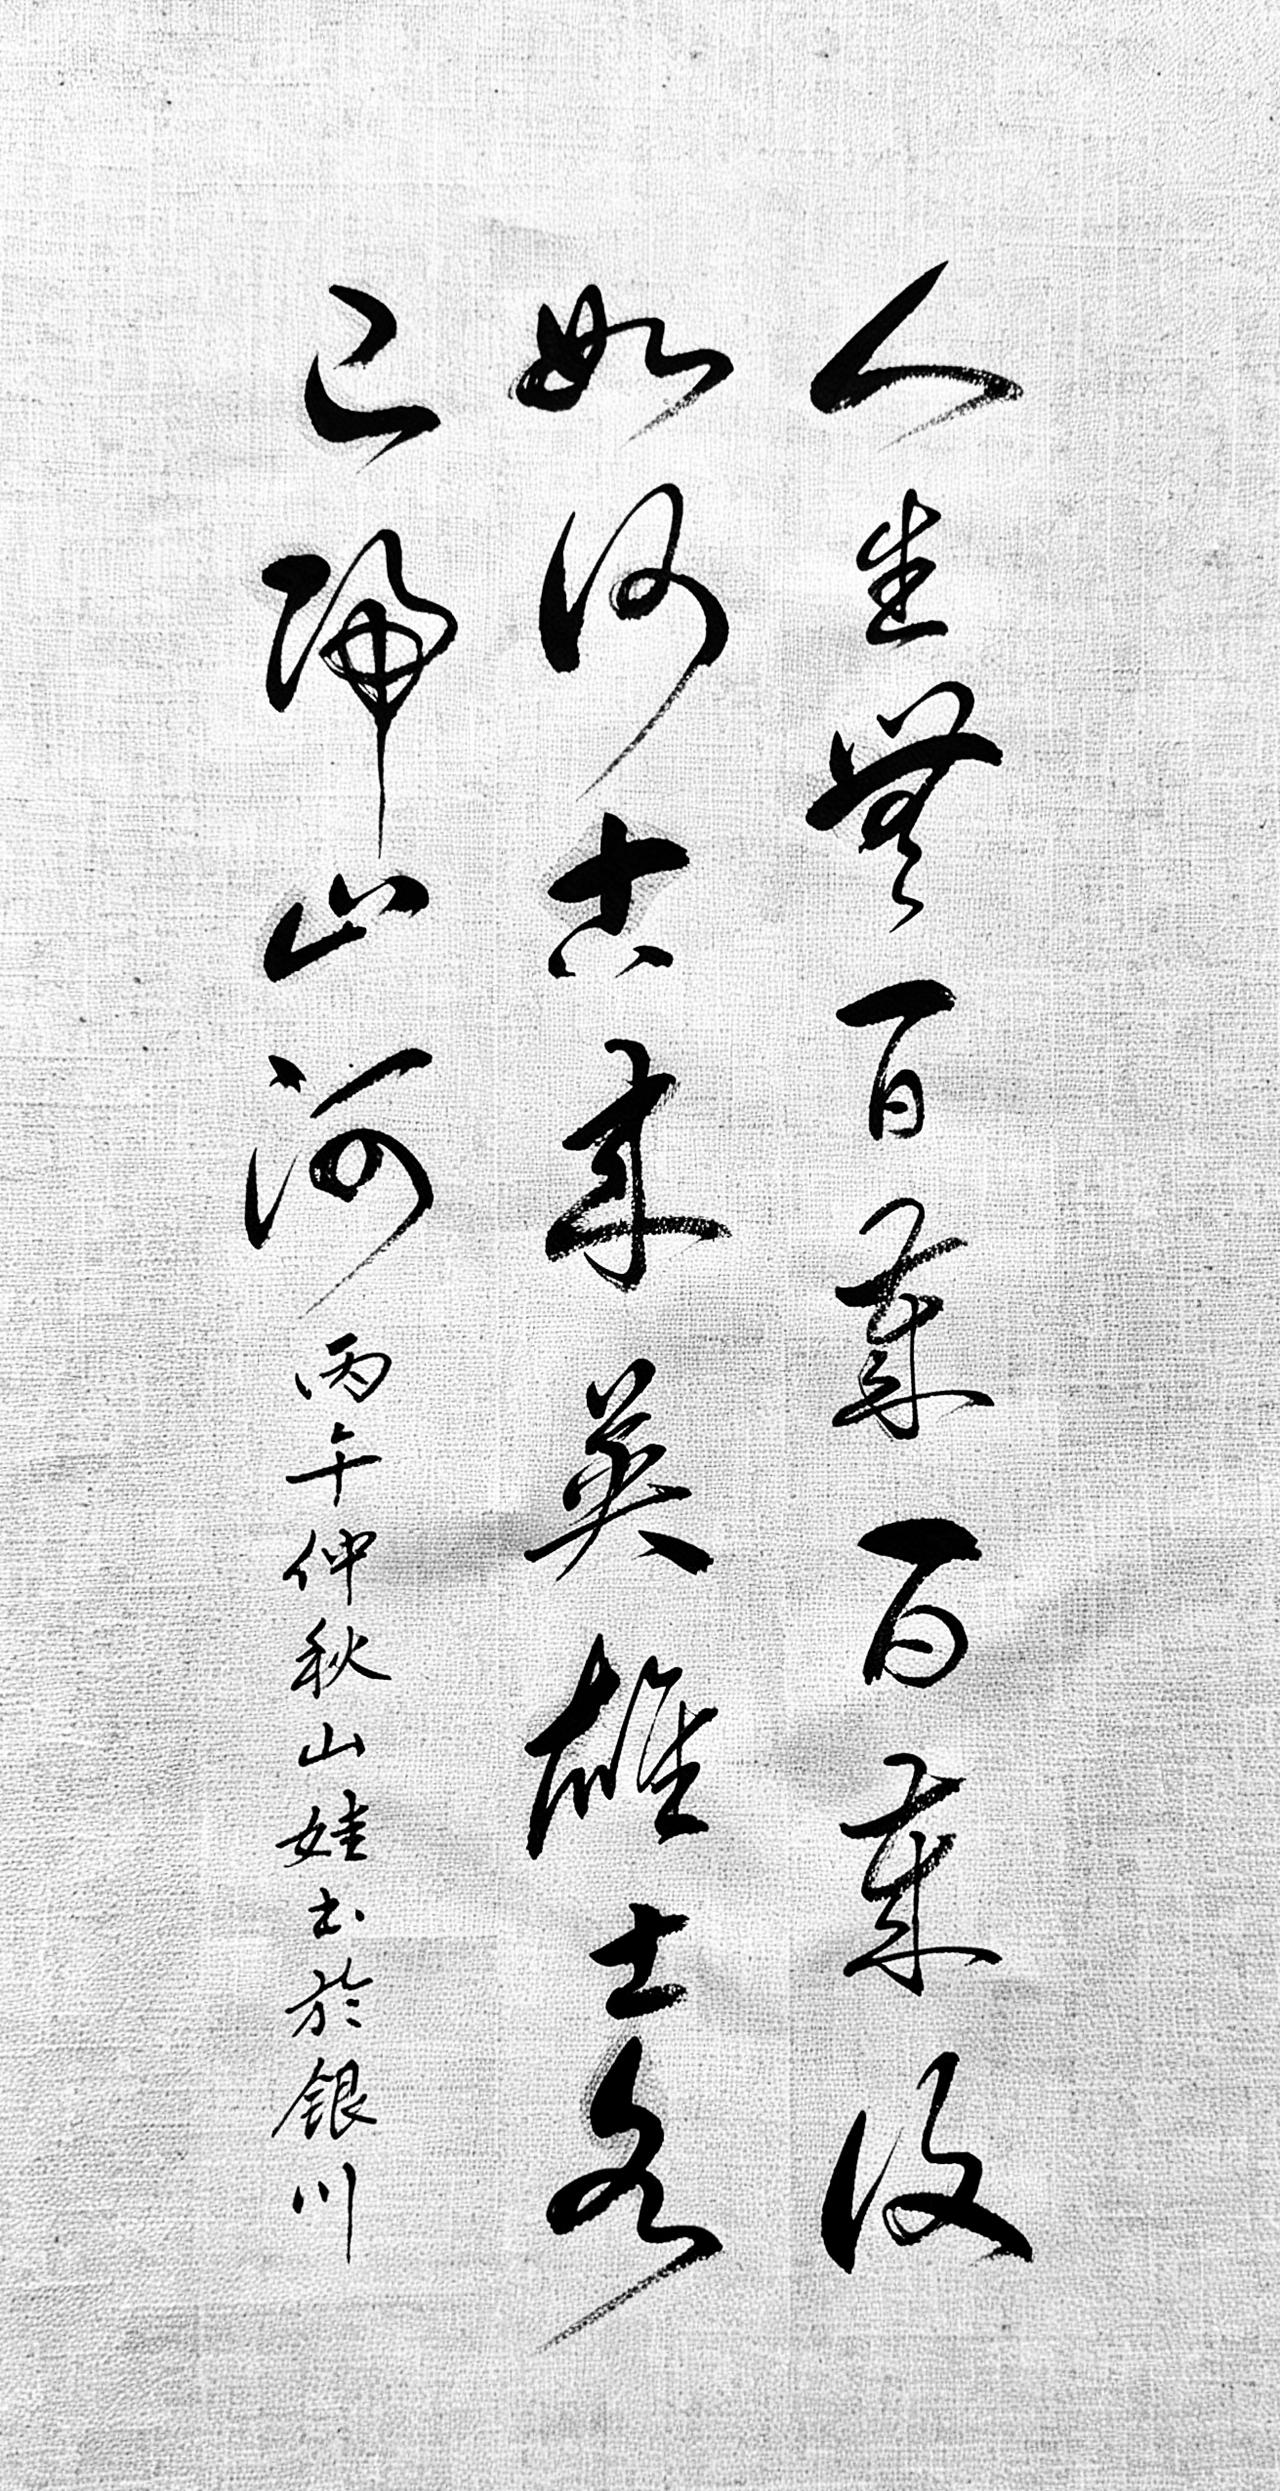 人生無百歲百歲復
如何古來英雄士各
已歸山河
丙午仲秋山娃书於銀川